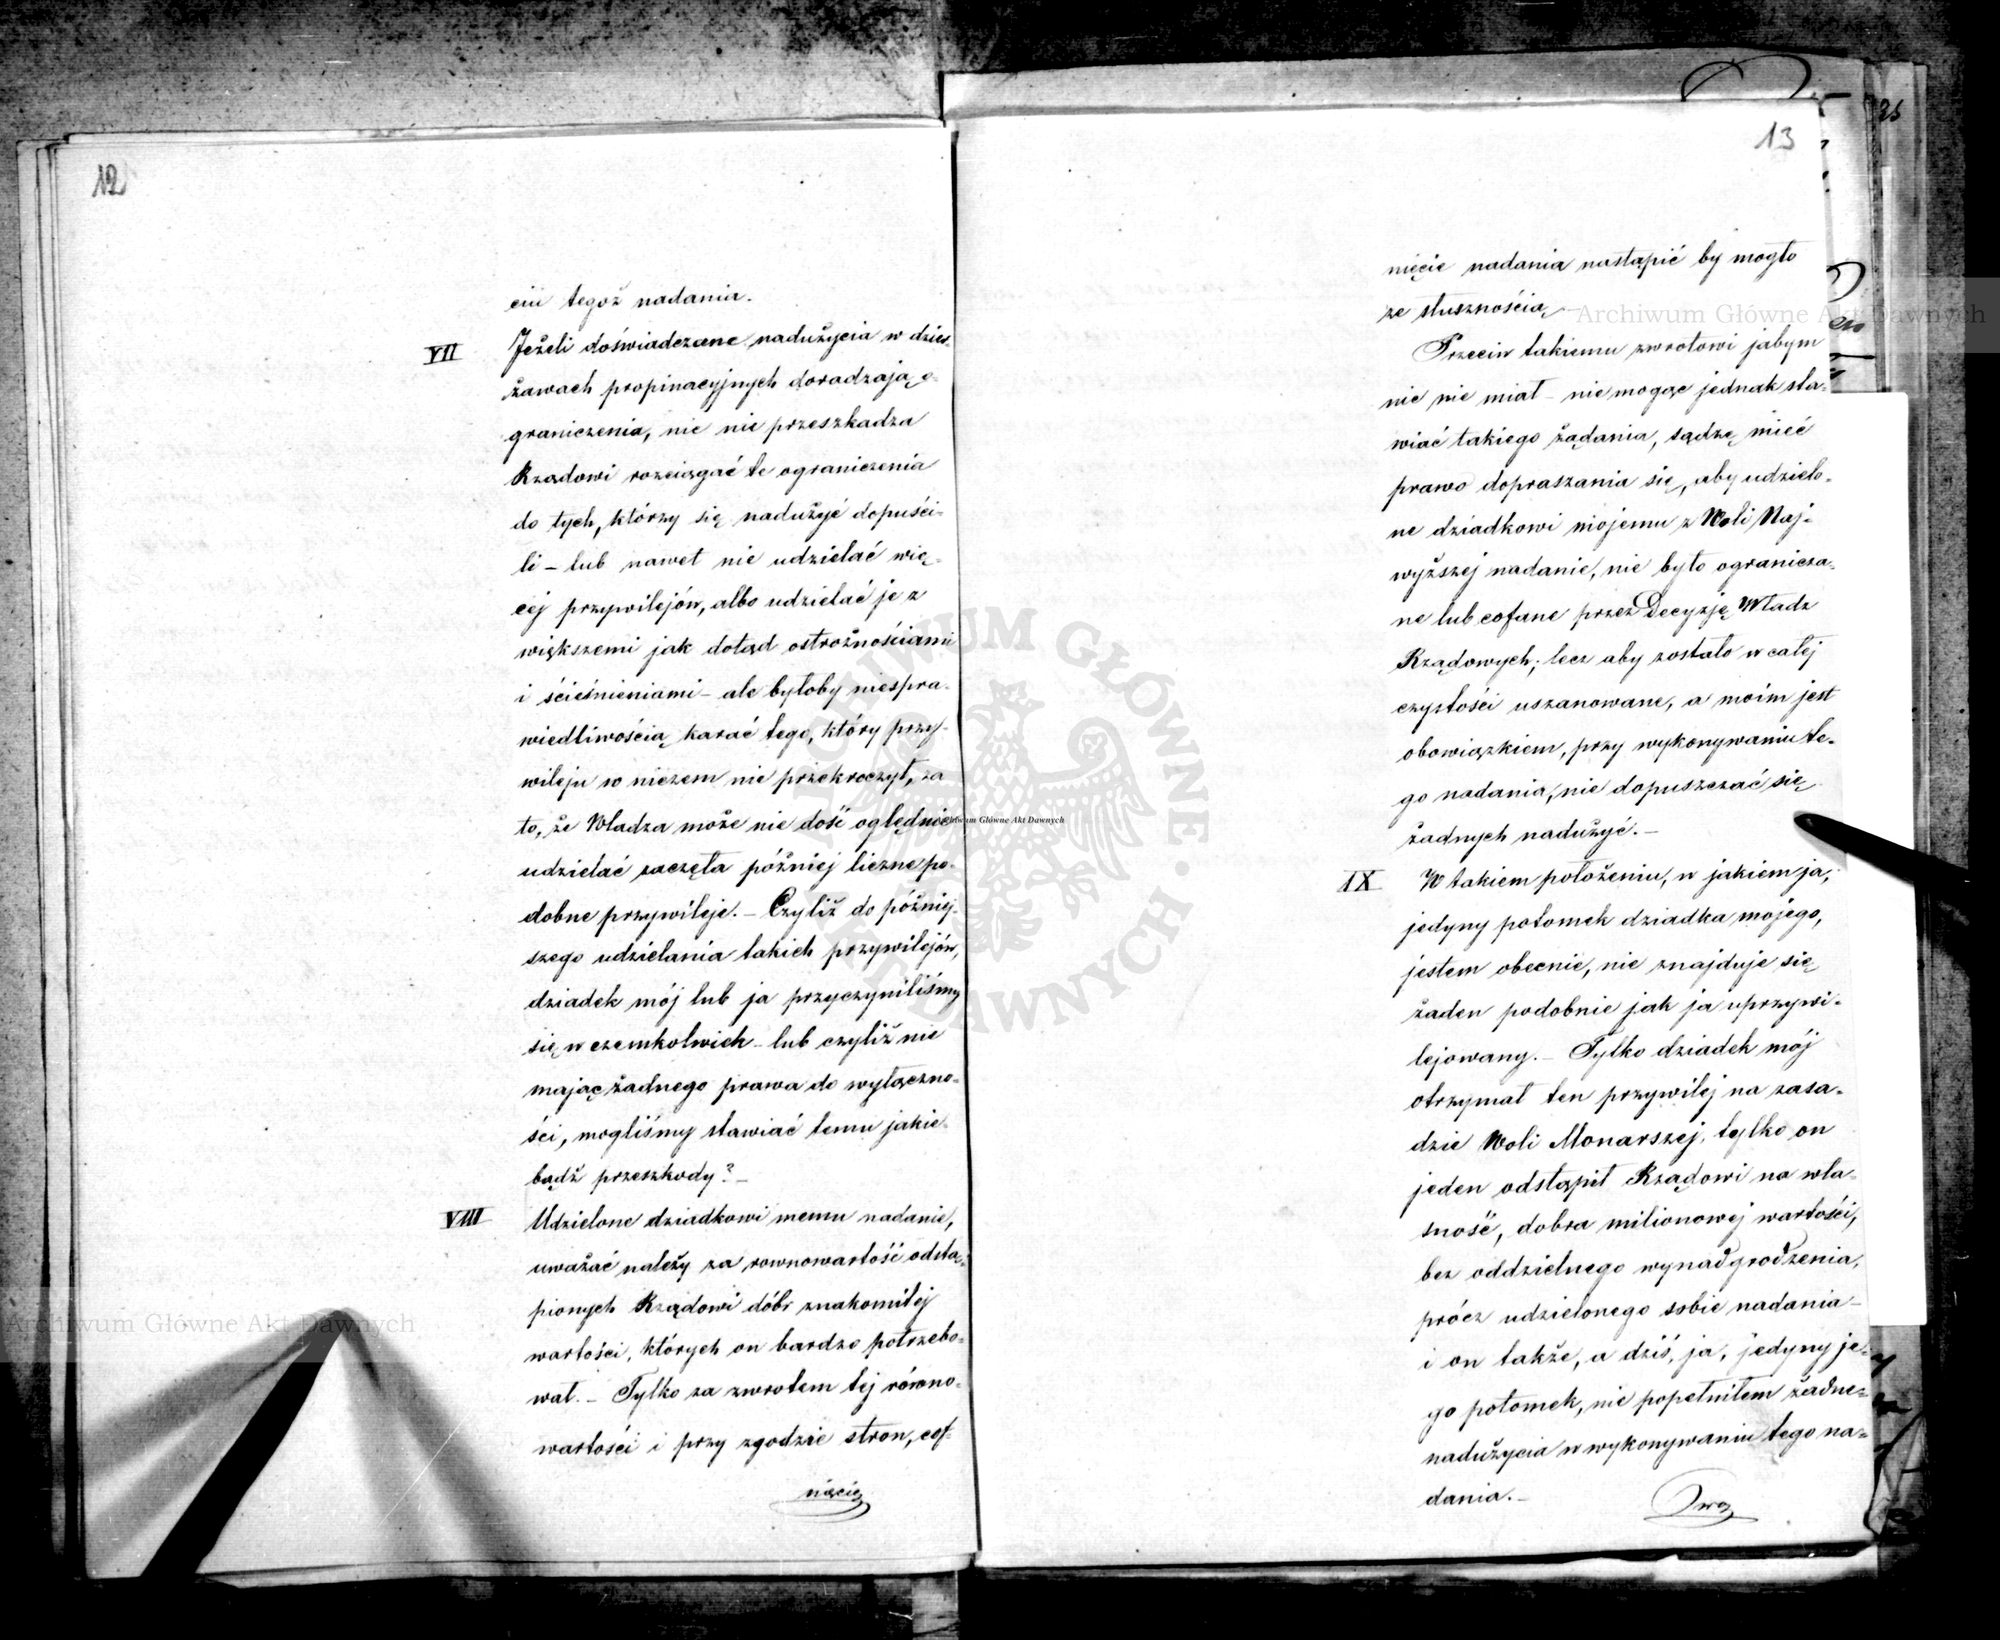 12
ciu tegoż nadania.
VII
Jeżeli doświadczane nadużycia w dzier-
żawach propinacyjnych doradzają o-
graniczenia, nic nie przeszkadza
Rządowi rozciągać te ograniczenia
do tych, którzy się nadużyć dopuści-
li – lub nawet nie udzielać wię-
cej przywilejów, albo udzielać je z
większemi jak dotąd ostrożnościami
i ścieśnieniami – ale byłoby niespra-
wiedliwością karać tego, który przy-
wileju w niczem nie przekroczył, za
to, że Władza może nie dość oględnie
udzielać zaczęła później liczne po-
dobne przywileje. – Czyliż do później-
szego udzielania takich przywilejów,
dziadek mój lub ja przyczyniliśmy
się w czemkolwiek – lub czyliż nie
mając żadnego prawa do wyłączno-
ści, mogliśmy stawiać temu jakie-
bądź przeszkody? –
VIII
Udzielone dziadkowi memu nadanie,
uważać należy za rownowartość odstą-
pionych Rządowi dóbr znakomitej
wartości, których on bardzo potrzebo-
wał. – Tylko za zwrotem tej równo-
wartości i przy zgodzie stron, cof-
nięcie
13
nięcie nadania nastąpić by mogło
ze słusznością –
Przeciw takiemu zwrotowi jabym
nic nie miał – nie mogąc jednak sta-
wiać takiego żądania, sądzę mieć
prawo dopraszania się, aby udzielo-
ne dziadkowi mojemu z Woli Naj-
wyższej nadanie, nie było ogranicza-
ne lub cofane przez Decyzję Władz
Rządowych; lecz aby zostało w całej
czystości uszanowane, a moim jest
obowiązkiem, przy wykonywaniu te-
go nadania, nie dopuszczać się
żadnych nadużyć. –
IX
W takiem położeniu, w jakiem ja,
jedyny potomek dziadka mojego,
jestem obecnie, nie znajduje się
żaden podobnie jak ja uprzywi-
lejowany. – Tylko dziadek mój
otrzymał ten przywilej na zasa-
dzie Woli Monarszej, tylko on
jeden odstąpił Rządowi na wła-
sność, dobra milionowej wartości,
bez oddzielnego wynadgrodzenia,
prócz udzielonego sobie nadania –
i on także, a dziś, ja, jedyny je-
go potomek, nie popełniłem żadne-
nadużycia w wykonywaniu tego na-
dania. –
Archiwum Główne Akt Dawnych
Archiwum Główne Akt Dawnych
Archiwum Główne Akt Dawnych
ARCHIWUM GŁÓWNE AKT DAWNYCH